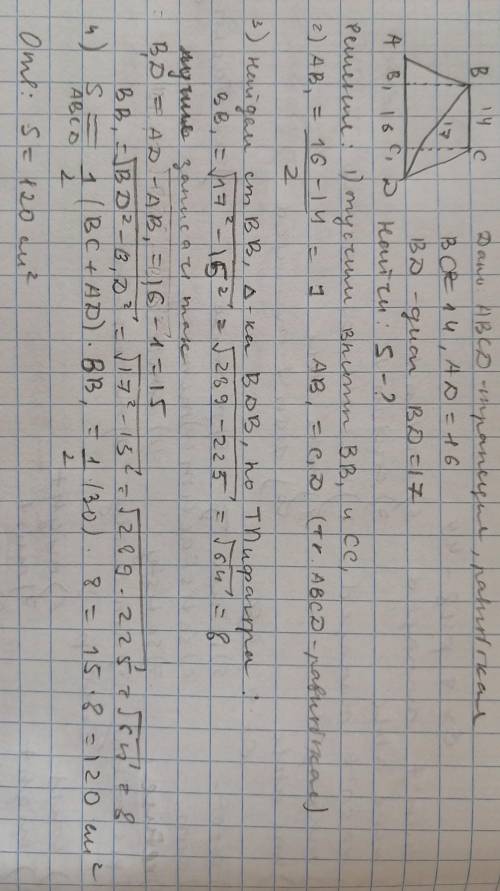 B 14 C
17
A B₁ 16 C₁ D
Дано ABCD - трапеция, равнобокая
BC = 14, AD = 16
BD - диаг BD = 17
Найти: S - ?
Решение: 1) пустим высоты BB₁ и CC₁
2) AB₁ = (16 - 14)/2 = 1 AB₁ = C₁D (т.к. ABCD - равнобокая)
3) найдем ст BB₁ Δ-ка BDB₁ по Т Пифагора:
BB₁ = √17² - 15² = √289 - 225 = √64 = 8
лучше записать так
: B₁D = AD - AB₁ = 16 - 1 = 15
BB₁ = √BD² - B₁D² = √17² - 15² = √289 - 225 = √64 = 8
4) S ABCD = 1/2 (BC + AD) · BB₁ = 1/2 (30) · 8 = 15 · 8 = 120 см²
Отв: S = 120 см²